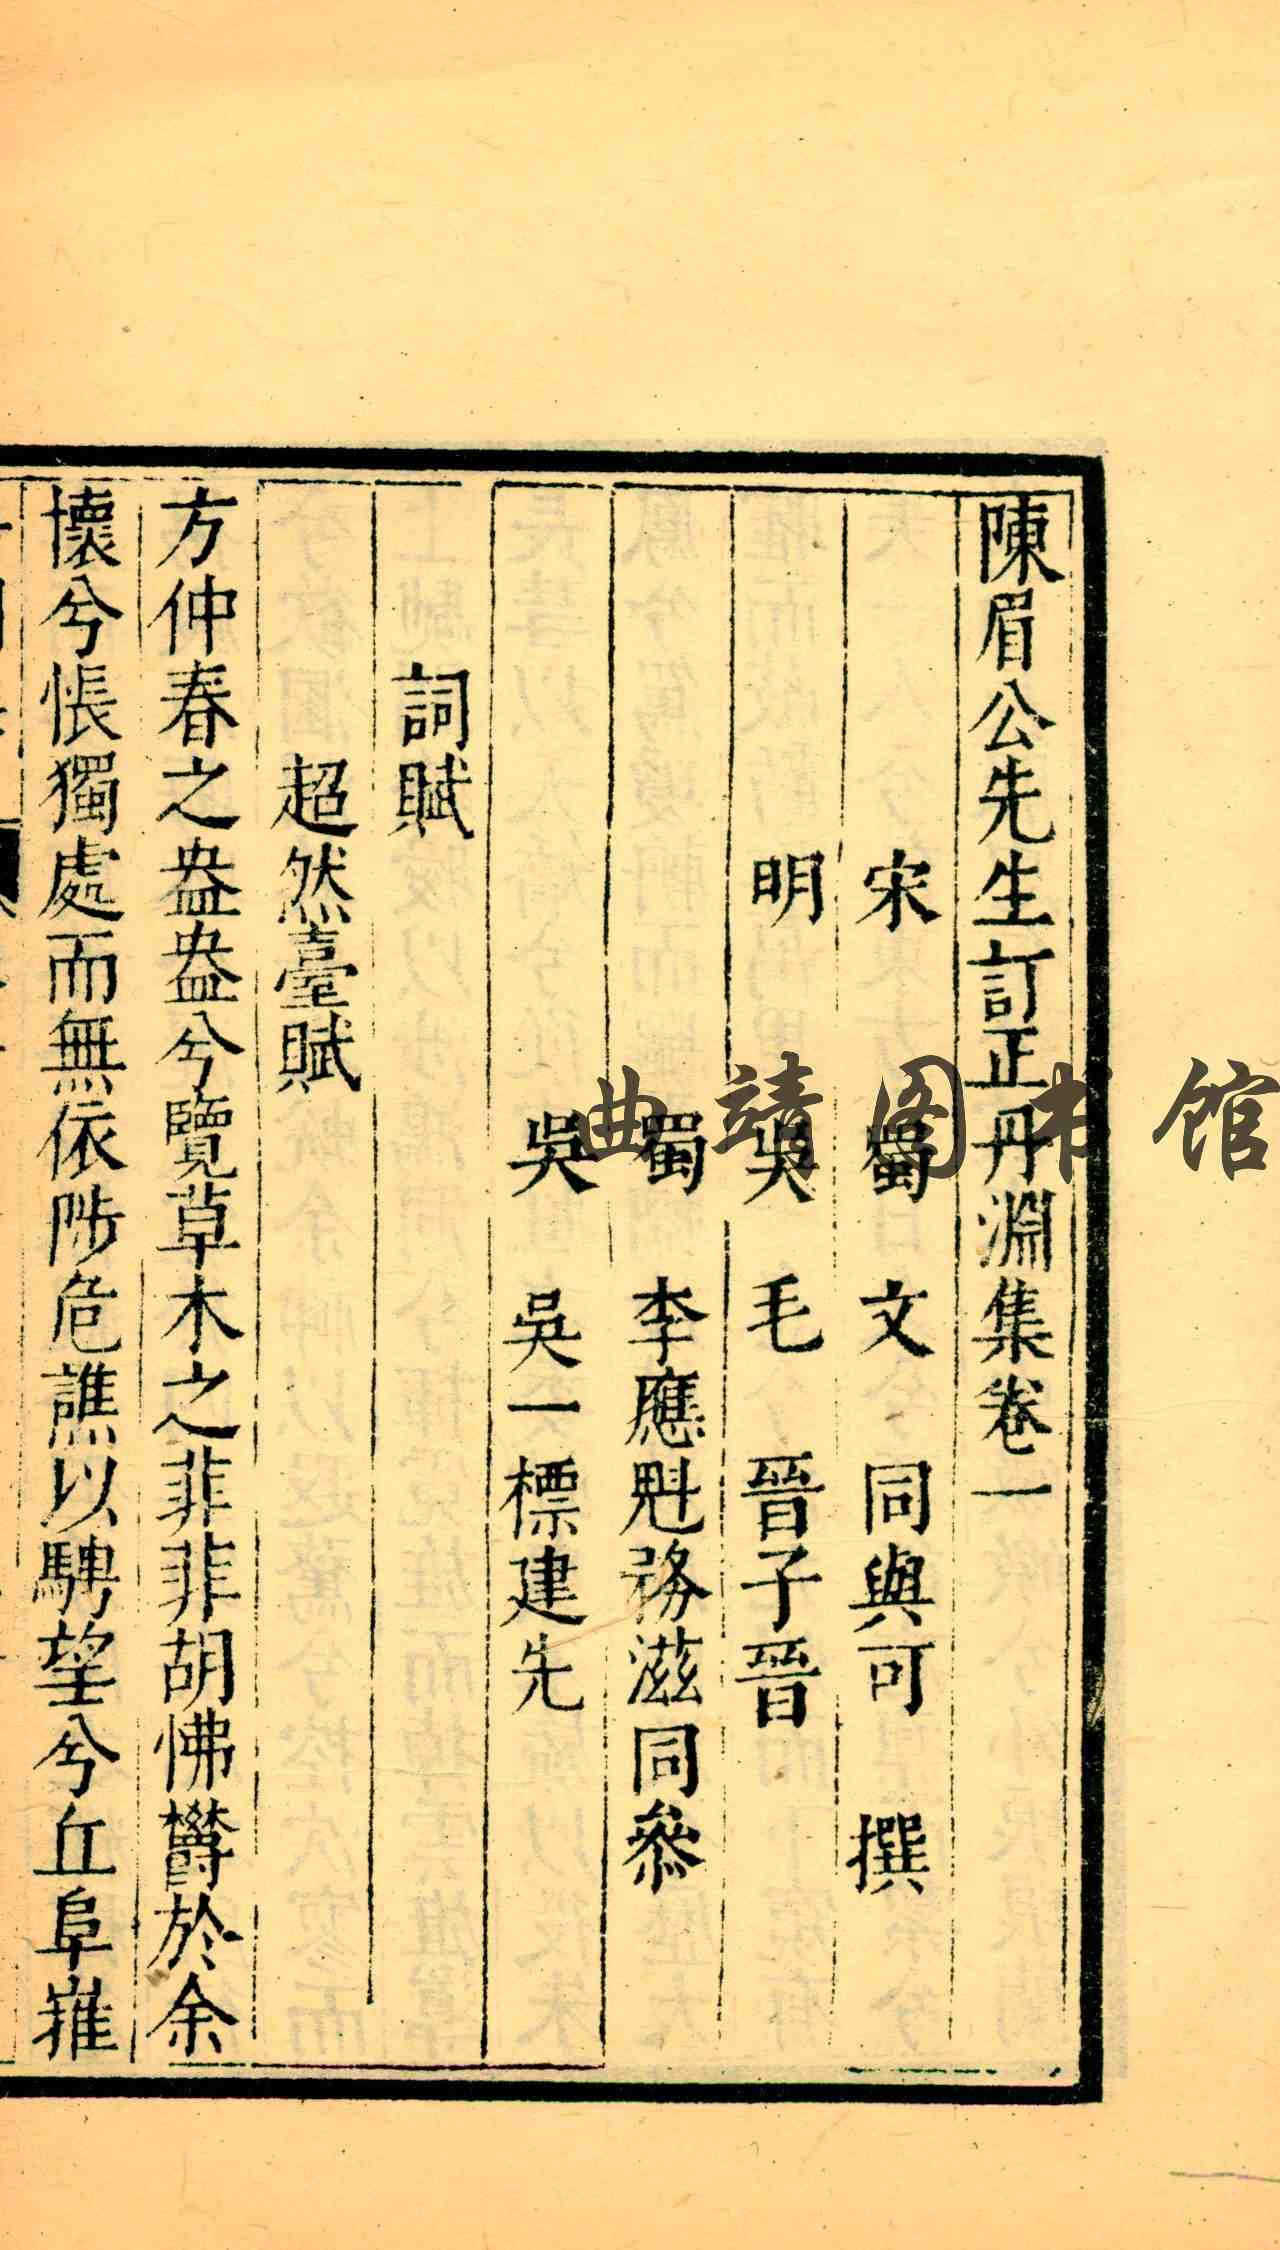 陳眉公先生訂正丹淵集卷一
宋 蜀 文 同與可 撰
明 吳 毛 晉子晉
蜀 李應魁務滋同參
吳 吳一標建先
詞賦
超然臺賦
方仲春之盎盎兮覽草木之菲菲胡怫欝於余
懷兮悵獨處而無依陟危譙以騁望兮丘阜摧
曲靖图书馆